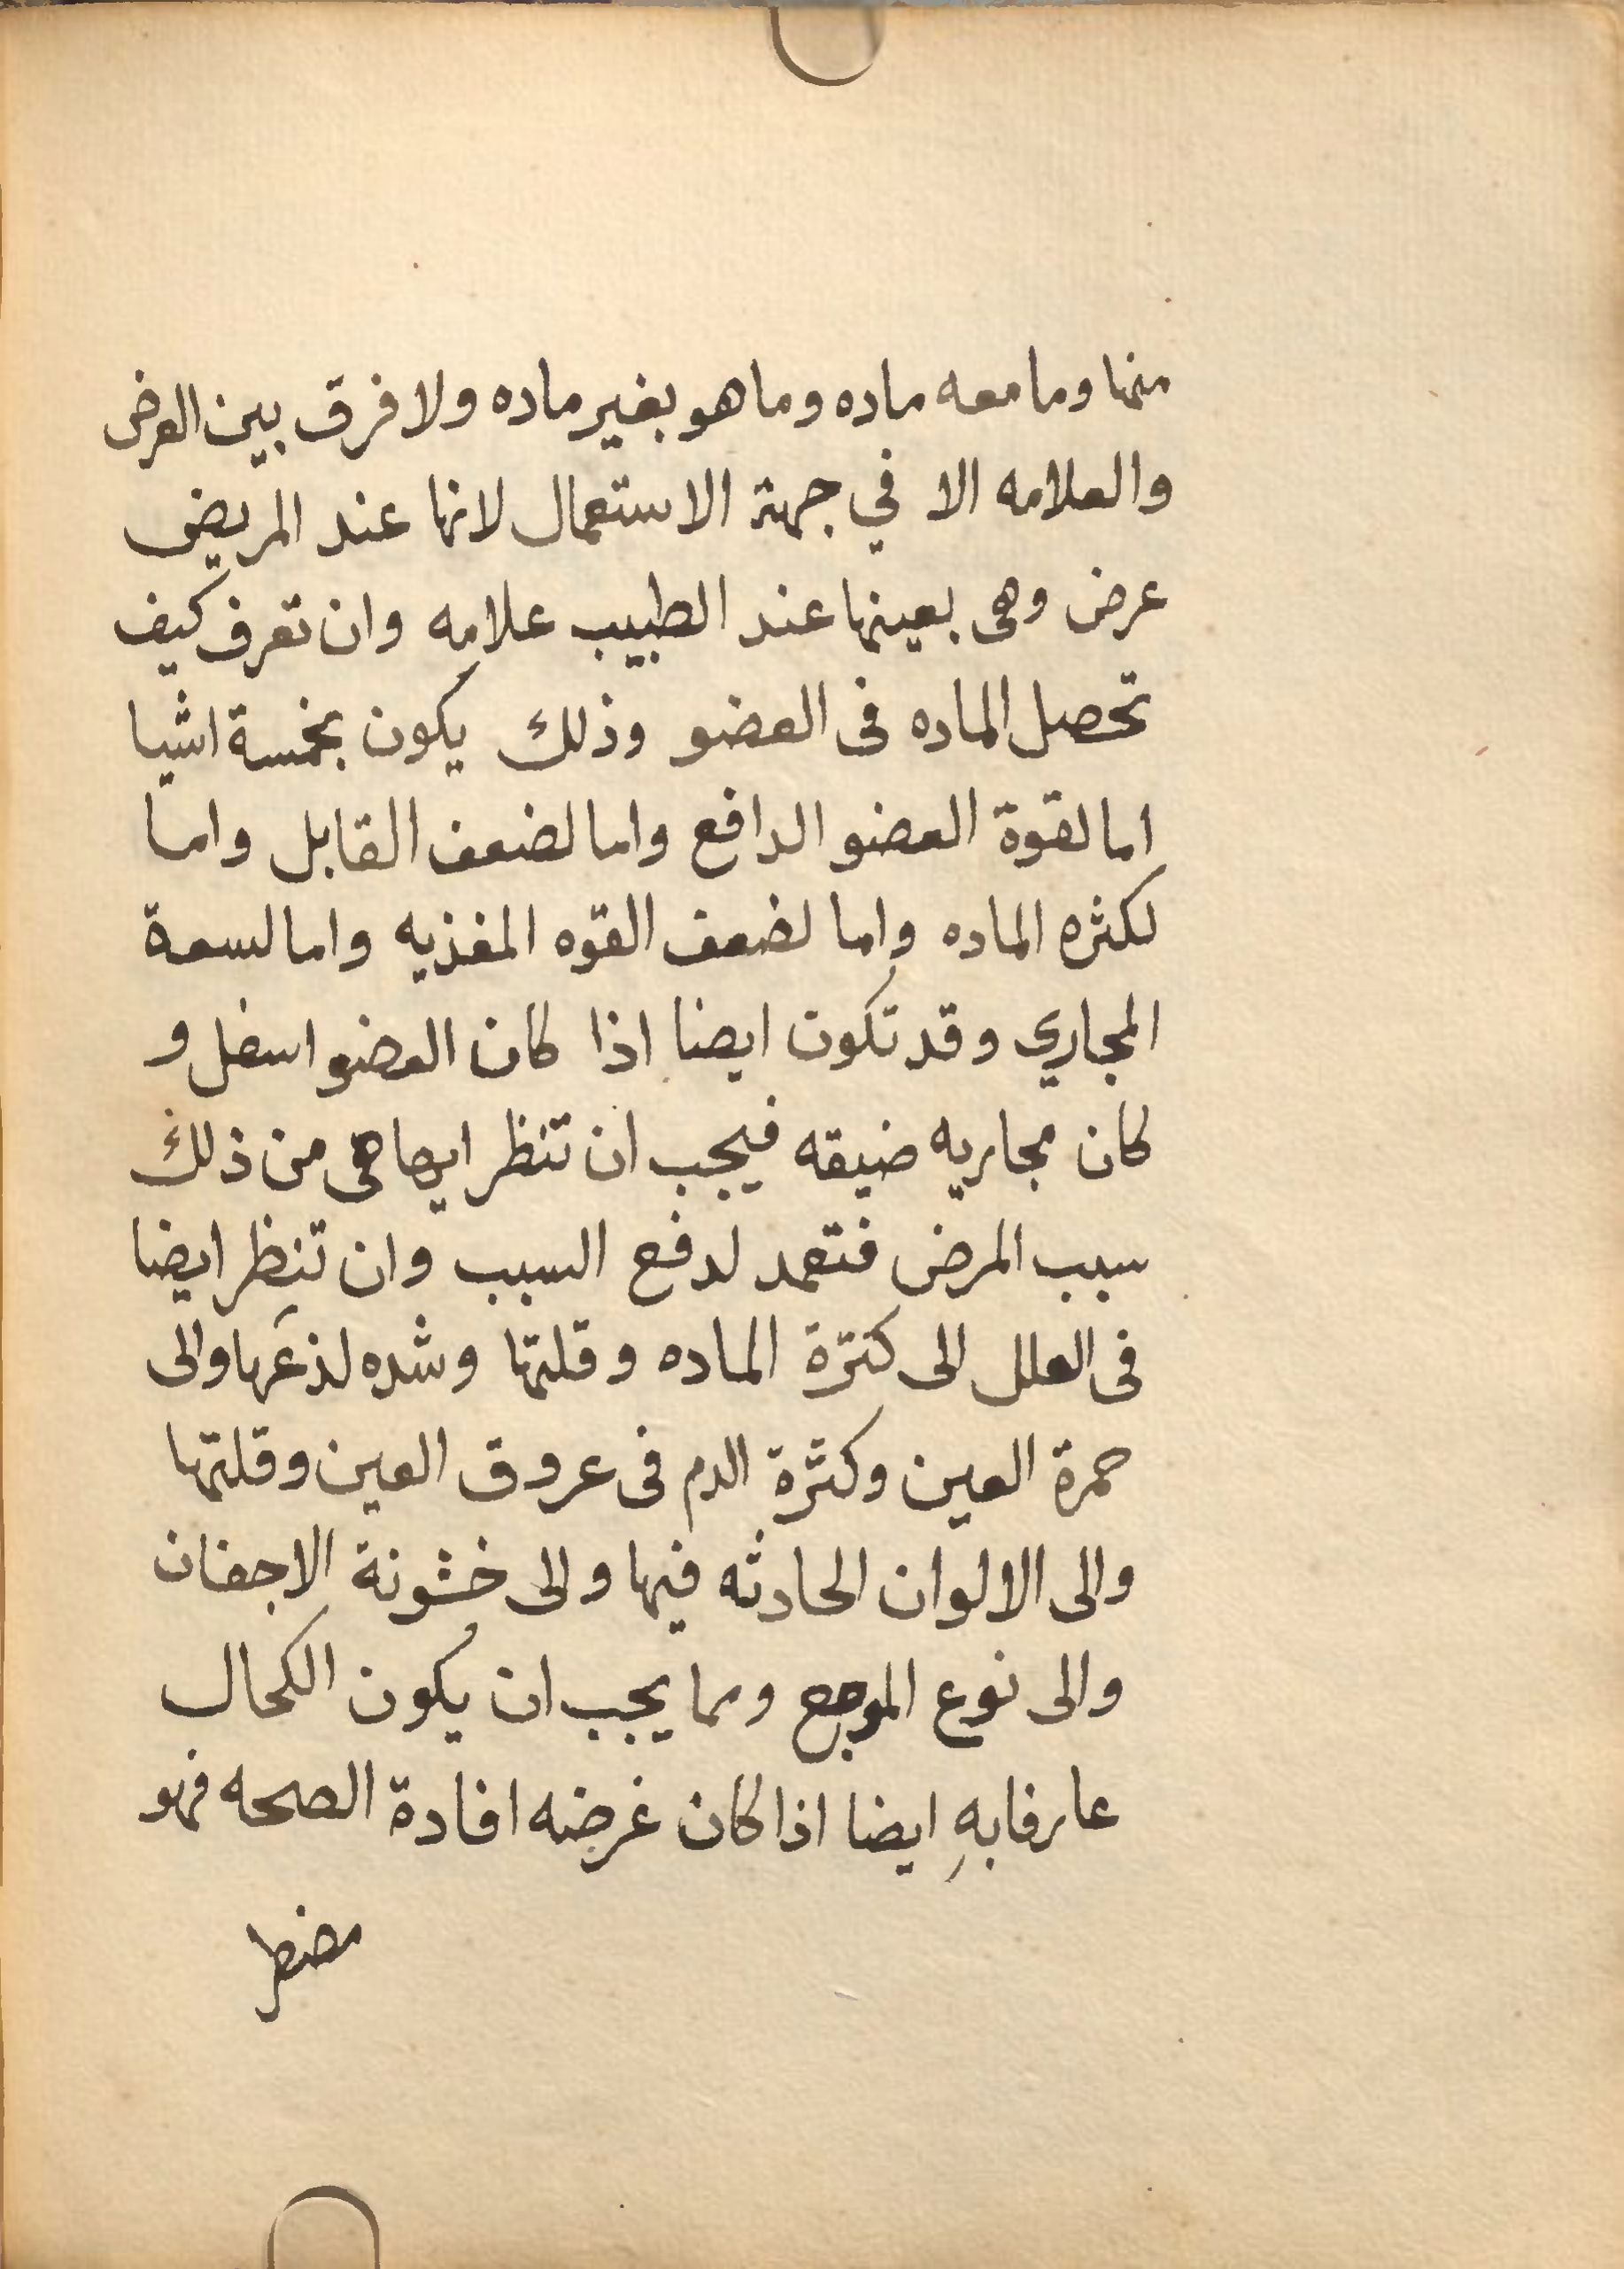 منها وما معه ماده وما هو بغير ماده ولا فرق بين العرض
والعلامه الا في جهة الاستعمال لانها عند المريض
عرض وهى بعينها عند الطبيب علامه وان تعرف كيف
تحصل الماده فى العضو وذلك يكون بخمسة اشيا
اما لقوة العضو الدافع واما لضعف القابل واما
لكثره الماده واما لضعف القوه المغذيه واما لسعة
المجاري وقد تكون ايضا اذا كان العضو اسفل و
كان مجاريه ضيقه فيجب ان تنظر ايها هى من ذلك
سبب المرض فتعمد لدفع السبب وان تنظر ايضا
فى العلل الى كثرة الماده وقلتها وشده لذعها والى
حمرة العين وكثرة الدم فى عروق العين وقلتها
والى الالوان الحادثه فيها والى خشونة الاجفان
والى نوع الموجع ومما يجب ان يكون الكحال
عارفا بهِ ايضا اذا كان غرضه افادة الصحه فهو
مضطر